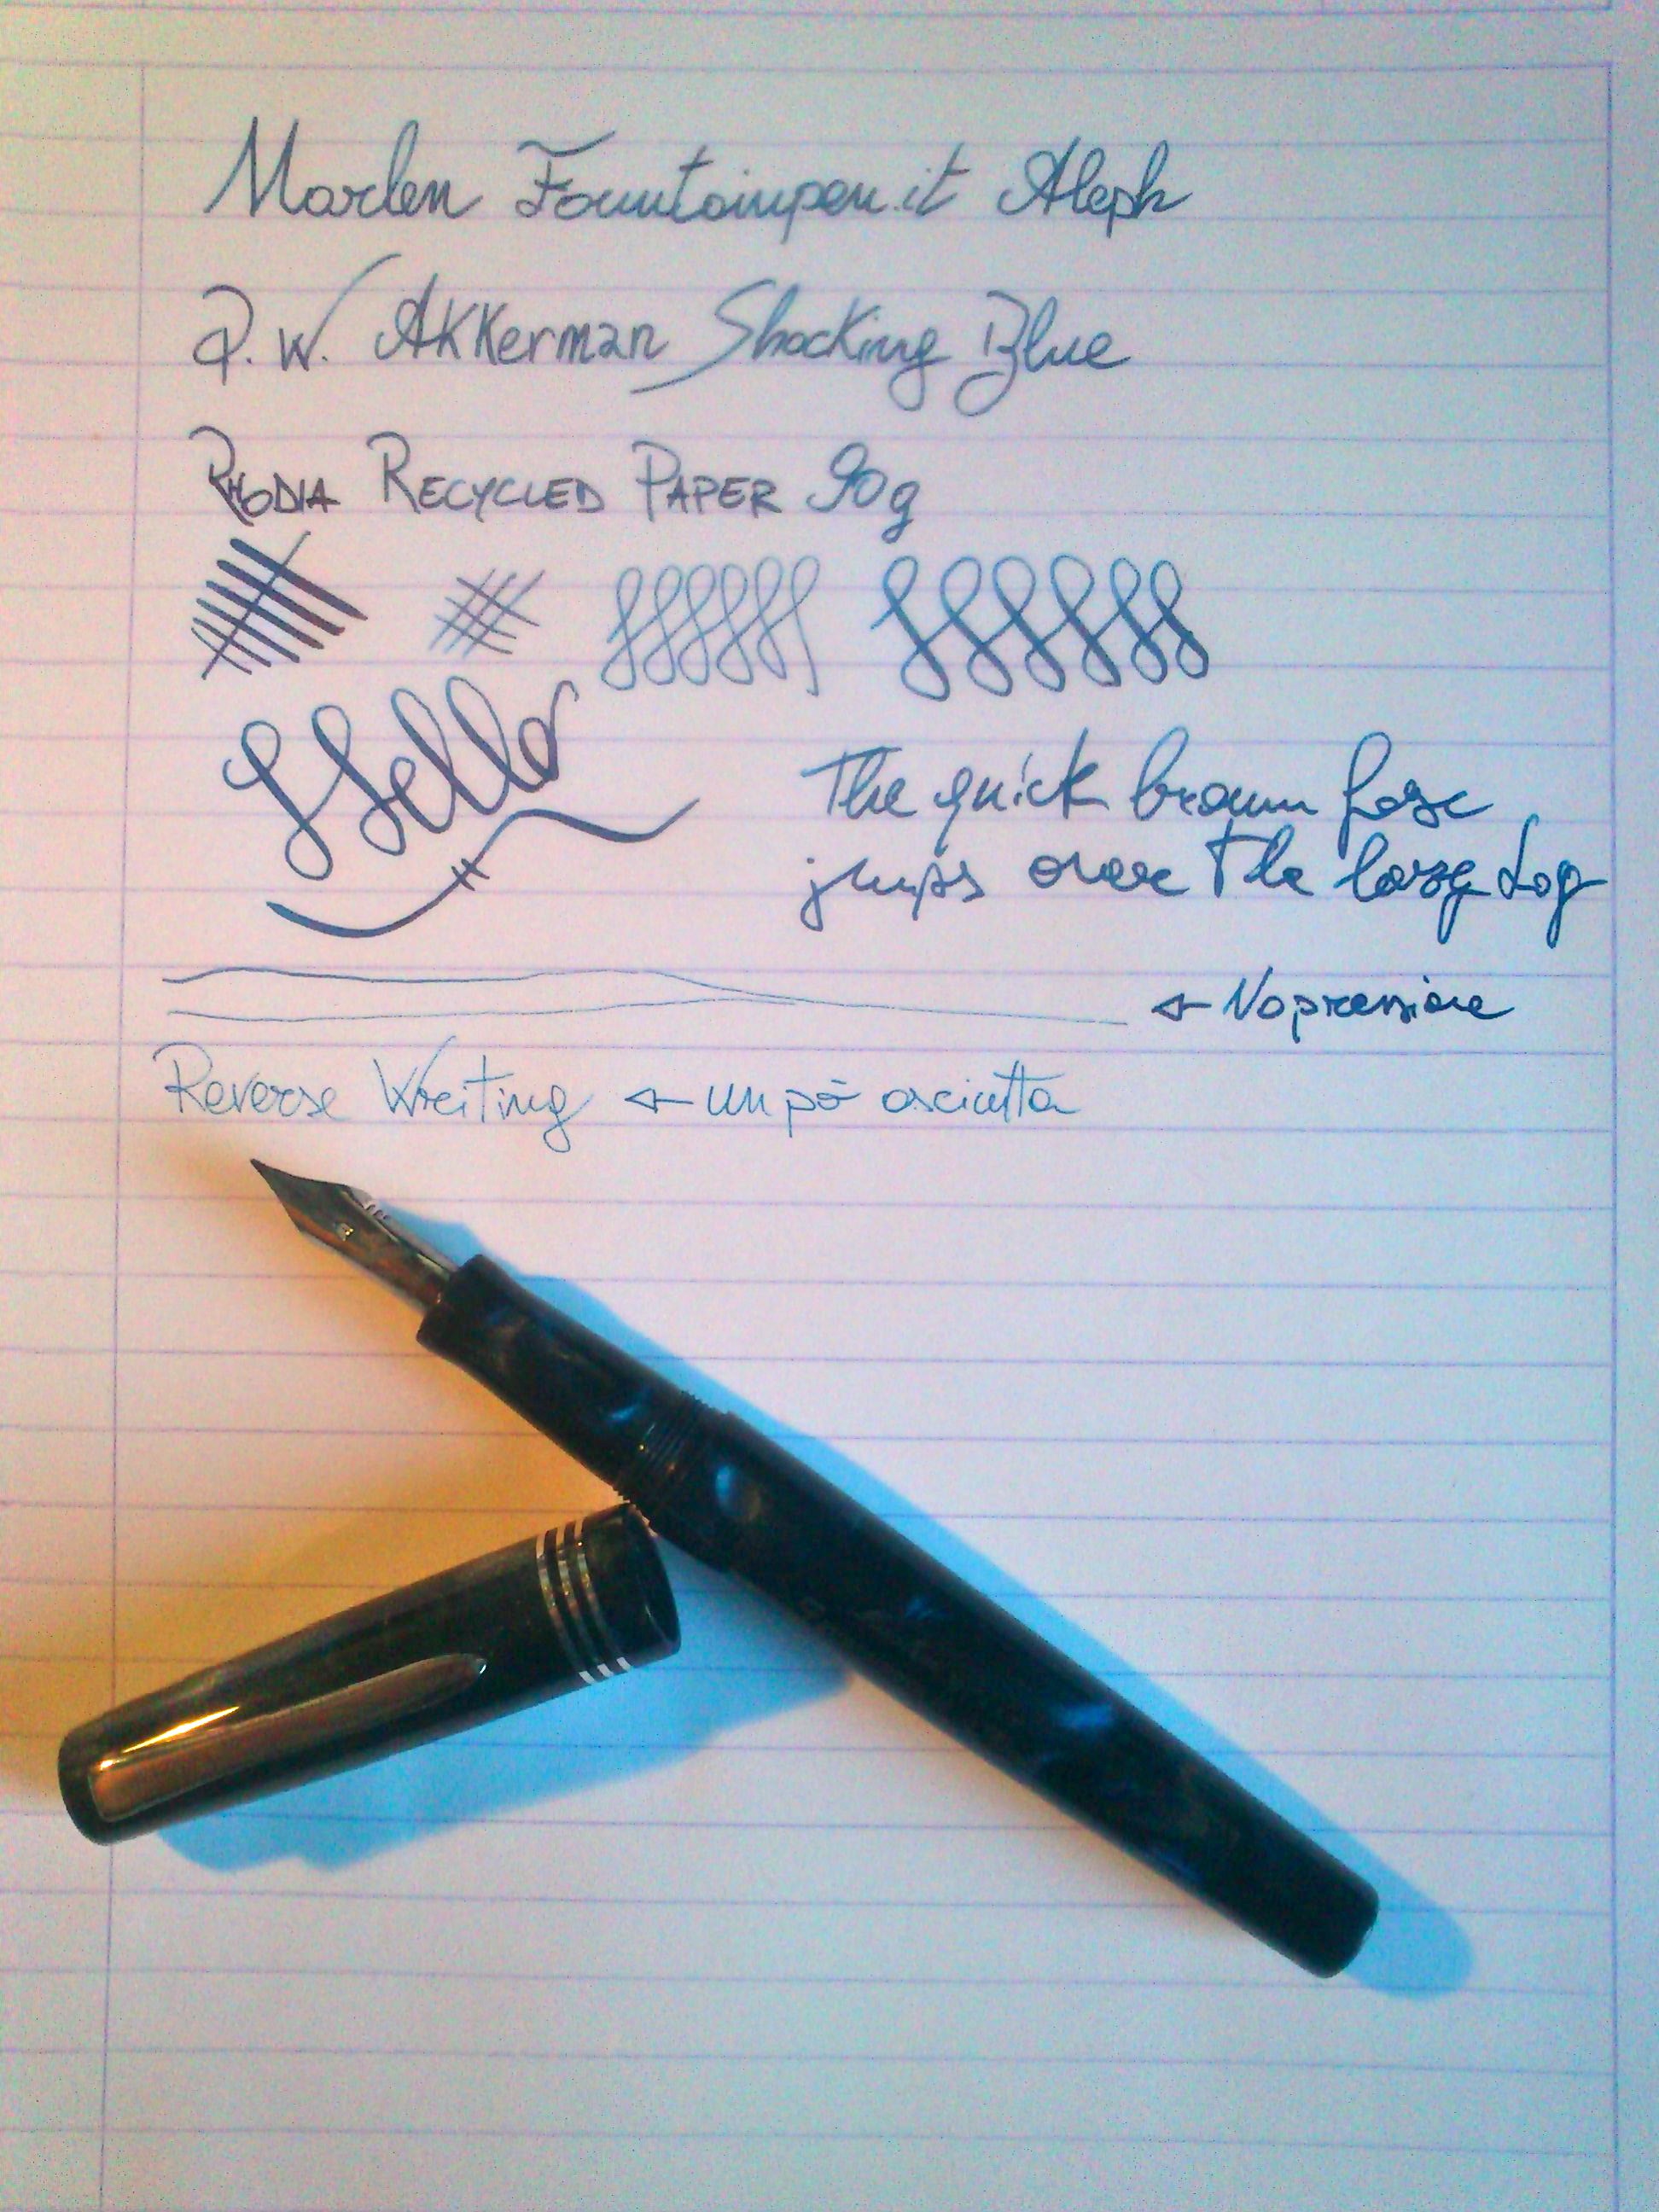 Marlen Fountainpen.it Aleph
P.W. Akkerman Shocking Blue
RHODIA RECYCLED PAPER 90g
Hello
The quick brown fox
jumps over the lazy dog
← No pressione
Reverse Writing ← un pò asciutta